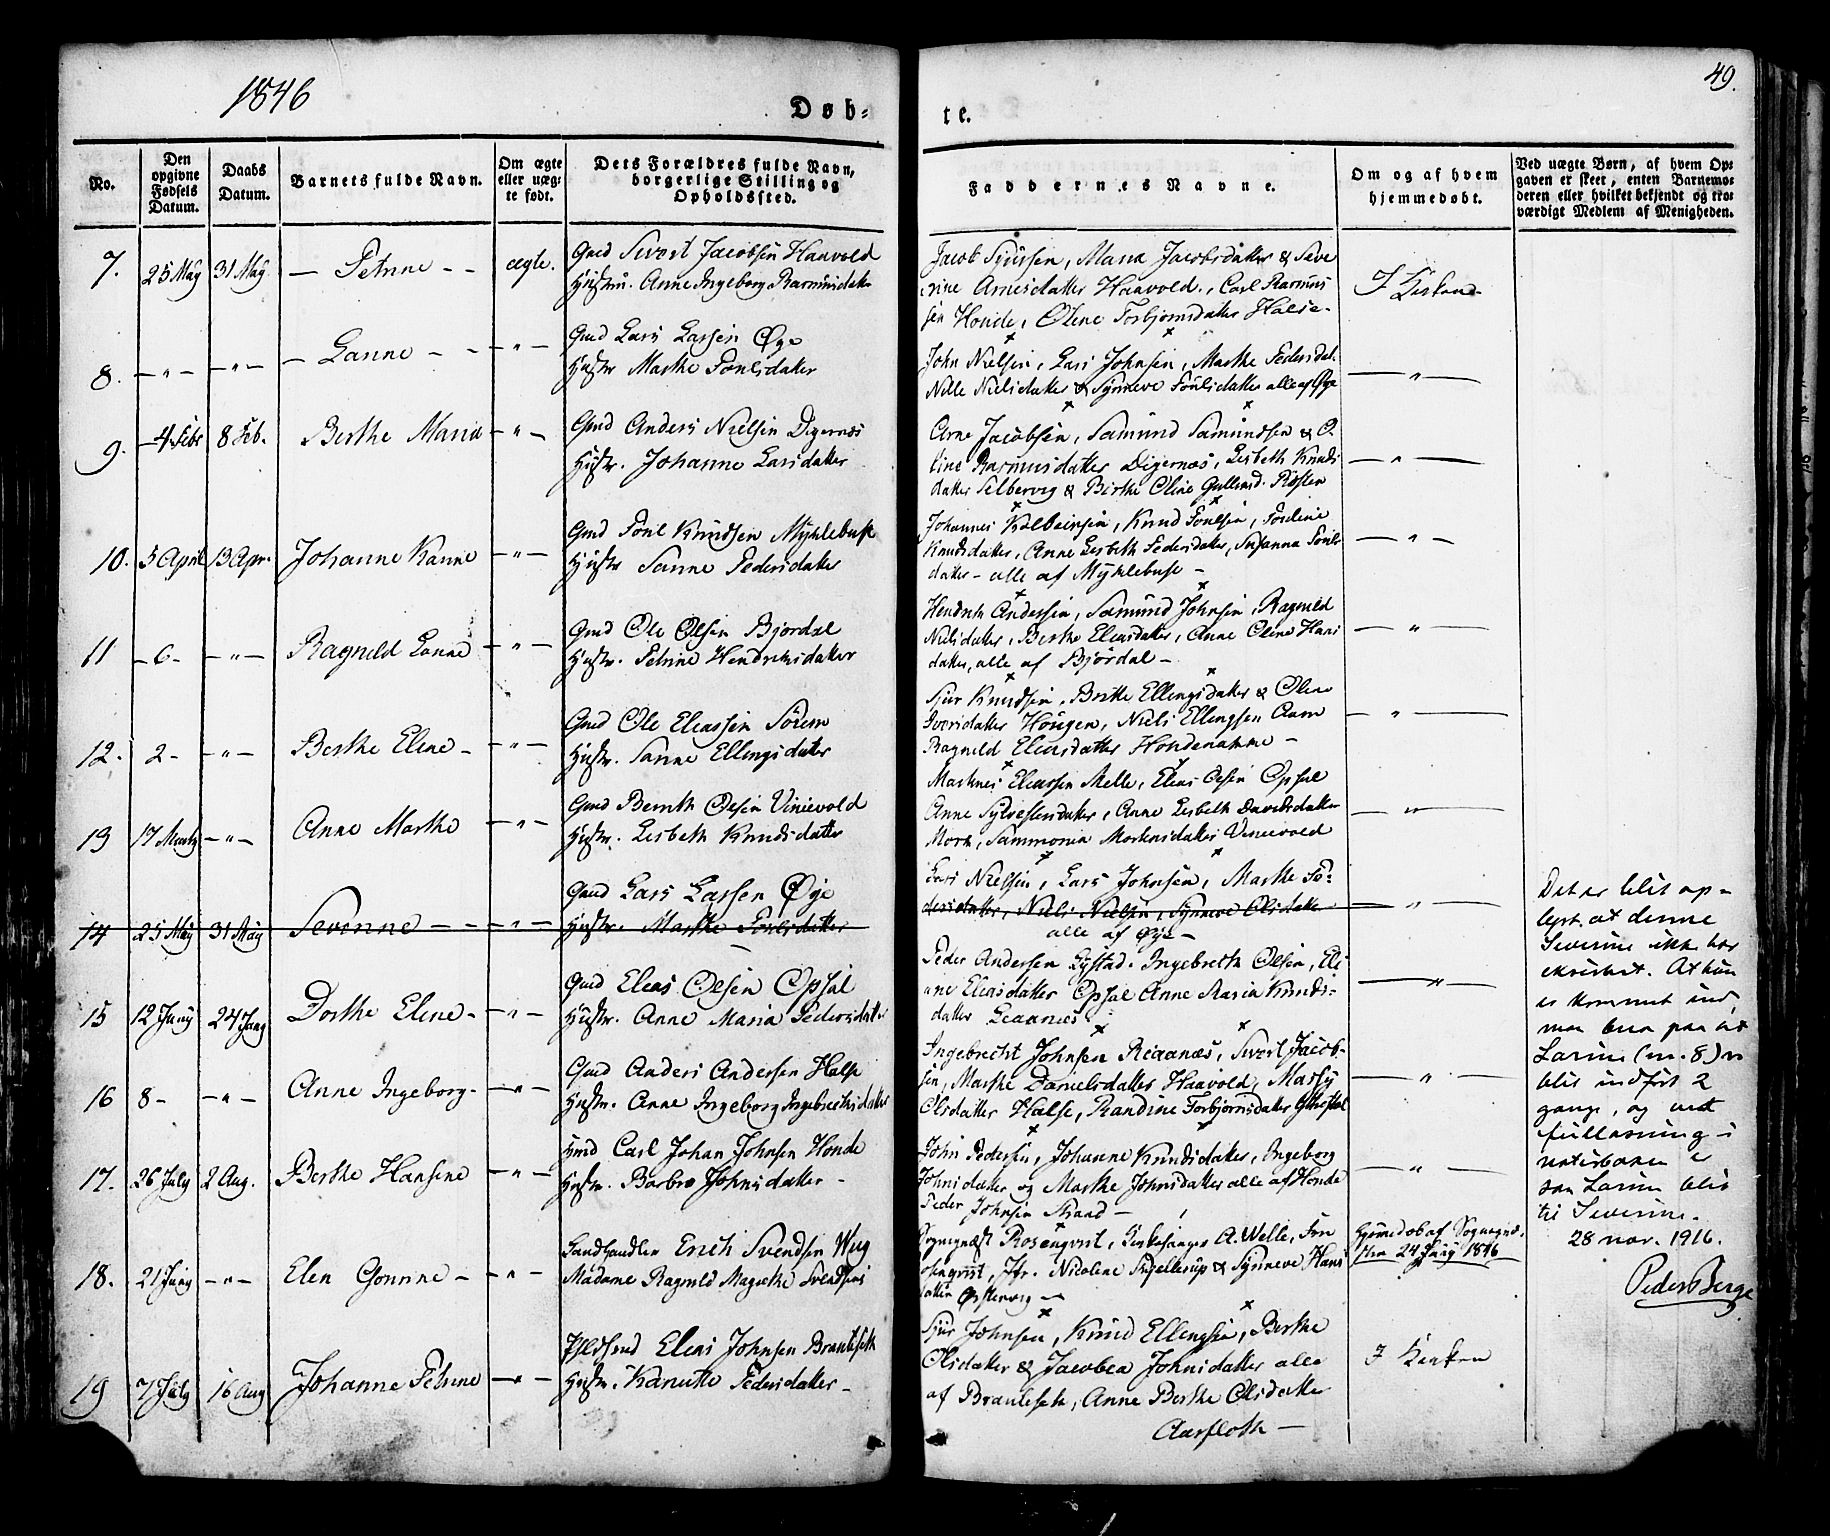 1846
49.
Døb-
te.
No.
Den opgivne Fødsels Datum.
Daabs Datum.
Barnets fulde Navn.
Om ægte eller uægte født.
Dets Forældres fulde Navn, borgerlige Stilling og Opholdssted.
Faddernes Navne.
Om og af hvem hjemmedøbt.
Ved uægte Børn, af hvem Opgaven er skeet, enten Barnemoderen eller hvilket bekjendt og troværdigt Medlem af Menigheden.
7. 25 May 31 May – Petrine – – ægte.
Gmd Sivert Jacobsen Haavold
Hustru. Anne Ingeborg Rasmusdatter
Jacob Sjursen, Maria Jacobsdatter & Seve
rine Arnesdatter Haavold, Carl Rasmus
sen Honde, Oline Torbjornsdatter Halse –
I Kirken
8. – " – – " – – Lanne – – – " –
Gmd Lars Larsen Øye
Hustr Marthe Poulsdatter
John Nielsen, Lars Johnsen, Marthe Pedersdat.
Nille Nielsdatter & Synneve Poulsdatter alle af Øye
– " –
9. 4 Febr 8 Feb. Berthe Maria – " –
Gmd Anders Nielsen Digernæs
Hustr. Johanne Larsdatter
Arne Jacobsen, Samund Samundsen & O-
line Rasmusdatter Digernæs, Lisbeth Knuds
datter Selbervig & Berthe Oline Gullmd. Røsten
– " –
10. 5 April 13 Apr. Johanne Hanne – " –
Gmd Poul Knudsen Myklebust
Hustr Sanne Pedersdatter
Johannes Kolbeinsen, Knud Poulsen, Pouline
Knudsdatter, Anne Lisbeth Pedersdatter, Susanna Pouls
datter – alle af Myklebust –
– " –
11 – 6 – – " – Ragnild Lanne – " –
Gmd Ole Olsen Bjordal
Hustr. Petrine Hendriksdatter
Hendrik Andersen, Samund Johnsen, Ragnild
Nielsdatter, Berthe Eliasdatter, Anne Oline Hans
datter, alle af Bjørdal –
– " –
12. 2 – – " – Berthe Eline – – " –
Gmd Ole Eliassen Sørem
Hustr. Sanne Ellingsdatter
Sjur Knudsen, Brithe Ellingsdatter & Oline
Iversdatter Hougen, Niels Ellingsen Aam
Ragnild Eliasdatter Hondenakke –
– " –
13 17 Marts – " – Anne Marthe – " –
Gmd Bernth Olsen Vinievold
Hustr. Lisbeth Knudsdatter
Mathias Eliassen Melle, Elias Olsen Opsal
Anne Sylvestersdatter, Anne Lisbeth Davidsdatter
Mork, Sammonia Mortensdatter Vinievold
– " –
14 25 May 31 May Sevrine – – – " –
Gmd Lars Larsen Øye
Hustr. Marthe Poulsdatter
Lars Nielsen, Lars Johnsen, Marthe Pe-
dersdatter, Niels Nielsen, Synneve Olsdatter
alle af Øye –
– " –
Det er blit op-
lyst at denne
Severine ikke har
eksistert. At hun
er kommet ind
maa bero paa at
Larine (nr. 8) er
blit indført 2
gange, og ved
feillæsning i
noterboken er
saa Larine blit
til Severine.
28 nov. 1916.
Peder Berge
15 12 Juny 24 Juny Dorthe Eline – – " –
Gmd Elias Olsen Opsal
Hustr. Anne Maria Pedersdatter
Peder Andersen Lystad, Ingebreth Olsen, Eli
ne Eliasdatter Opsal Anne Maria Knuds-
datter
– " –
16 8 – – " – Anne Ingeborg – – " –
Gmd Anders Andersen Halse
Hustr. Anne Ingeborg Ingebrethsdatter
Ingebrecht Johnsen, Sivert Jacob-
sen, Marthe Danielsdatter Haavold, Massy
Olsdatter Halse, Randine Torbjørnsdatter
– " –
17. 26 July 2 Aug. Berthe Hansine – " –
Gmd Carl Johan Johnsen Honde
Hustr. Barbro Johnsdatter –
John Pedersen, Johanne Knudsdatter, Ingeborg
Johnsdatter og Marthe Johnsdatter alle af Honde
Peder Johnsen Strand –
– " –
18. 21 Juny – " – Elen Gonrine – – " –
Landhandler Erich Svendsen Wug
Madame Ragnild Magrethe Svendsens
Sognepræst Rosenqvist, Kirkesanger A. Welle, Fru
Rosenqvist, Jfr. Nicoline & Synneve Hans
datter Ørstenvig –
Hjemedøb af Sognepræ.
then 24 Juny 1846
19 7 July 16 Aug Johanne Petrine – " –
Elias Johnsen Brautesæth
Hustr. Kanutte Pedersdatter –
Sjur Johnsen, Knud Ellingsen, Berthe
Olsdatter & Jacobea Johnsdatter alle
af Brautesæth, Anne Berthe Olsdatter
Aarfloth –
I Kirken